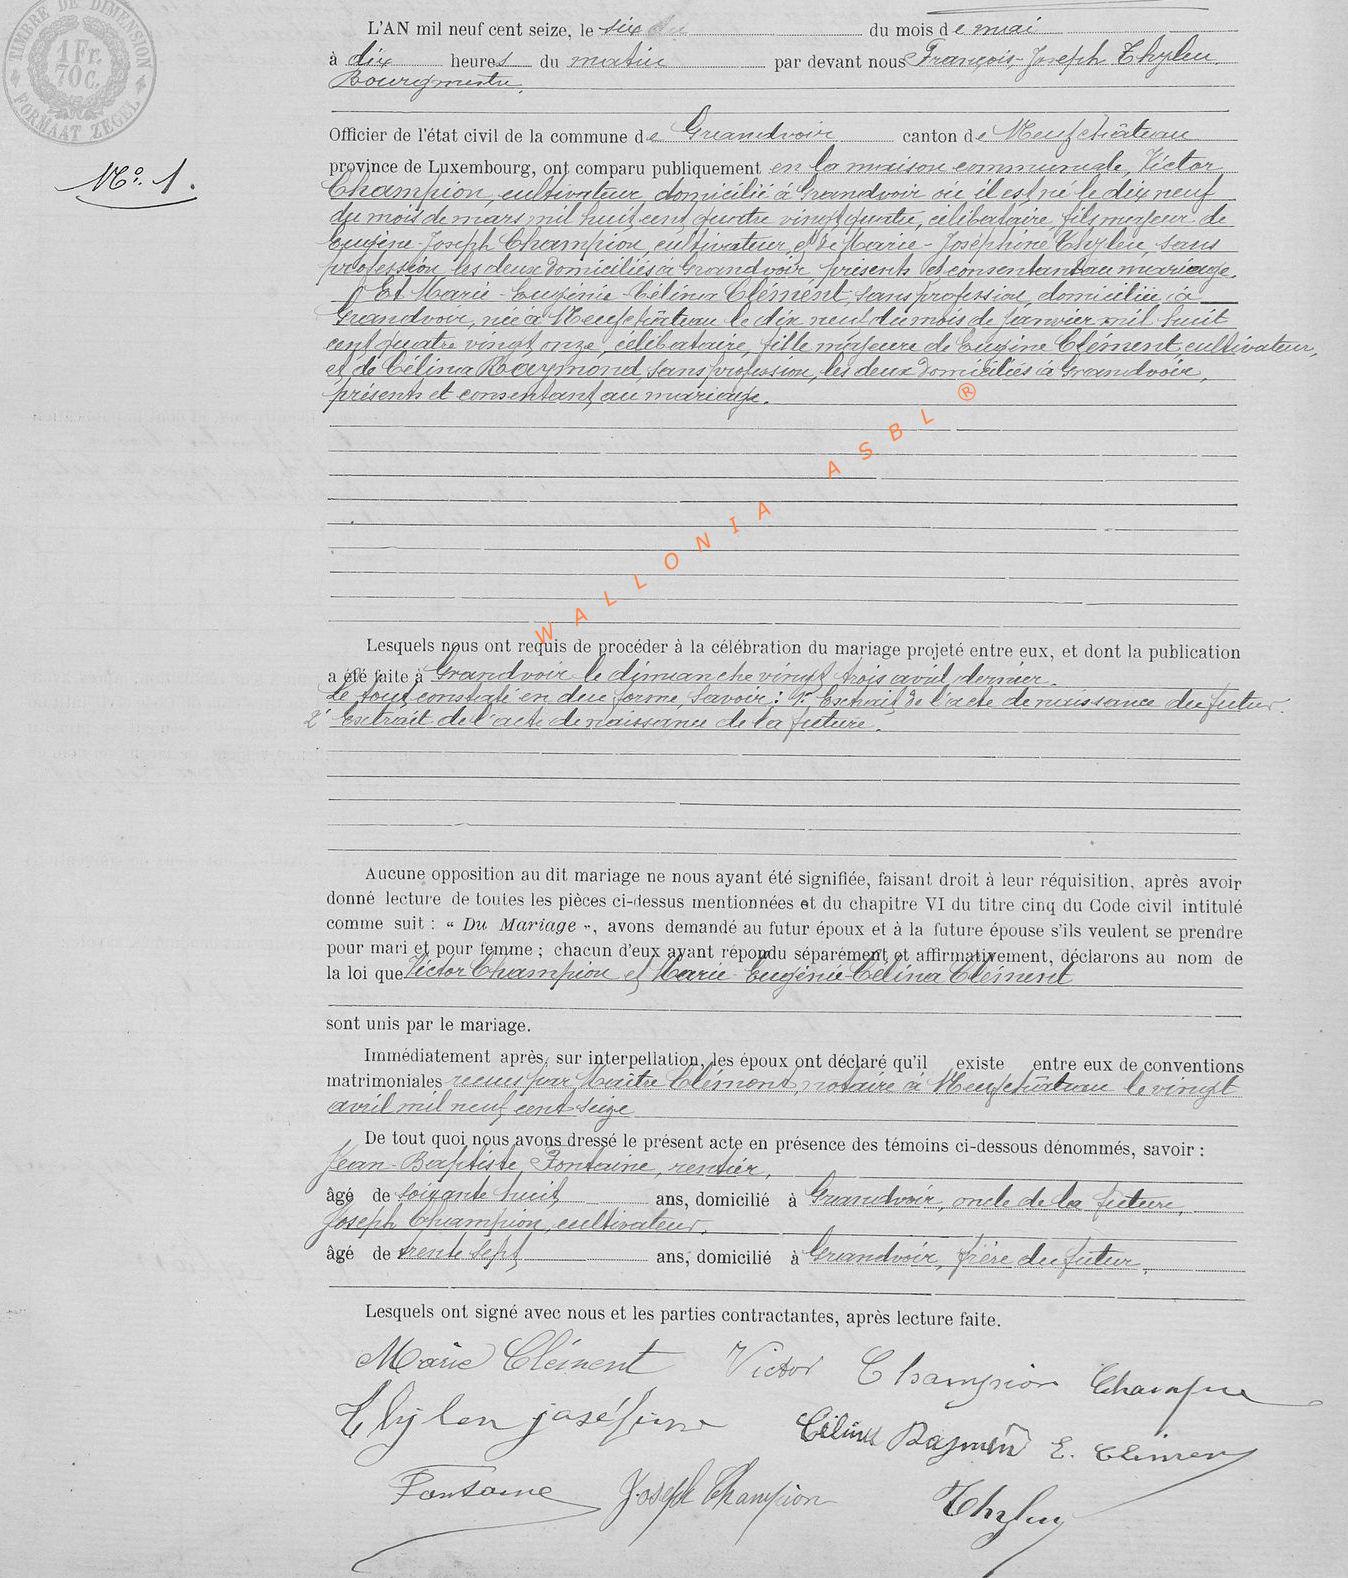 TIMBRE DE DIMENSION
1 Fr.
70 c.
FORMAAT ZEGEL
L'AN mil neuf cent seize, le six du mois de mai
à dix heures du matin par devant nous François-Joseph Thylen,
Bourgmestre,
Officier de l'état civil de la commune de Grandvoir canton de Neufchâteau
province de Luxembourg, ont comparu publiquement en la maison communale, Victor
N° 1.
Champion, cultivateur, domicilié à Grandvoir où il est né le dix neuf
du mois de mars mil huit cent quatre vingt quatre, célibataire, fils majeur de
Eugène-Joseph Champion, cultivateur, et de Marie-Joséphine Thylen, sans
profession, les deux domiciliés à Grandvoir, présents et consentant au mariage.
Et Marie-Eugénie-Célina Clément, sans profession, domiciliée à
Grandvoir, née à Neufchâteau le dix neuf du mois de Janvier mil huit
cent quatre vingt onze, célibataire, fille majeure de Eugène Clément, cultivateur,
et de Célina Raymond, sans profession, les deux domiciliés à Grandvoir,
présents et consentant au mariage.
WALLONIA ASBL ®
Lesquels nous ont requis de procéder à la célébration du mariage projeté entre eux, et dont la publication
a été faite à Grandvoir le dimanche vingt trois avril dernier.
Le tout constaté en due forme, Savoir: 1° Extrait de l'acte de naissance du futur.
2° Extrait de l'acte de naissance de la future.
Aucune opposition au dit mariage ne nous ayant été signifiée, faisant droit à leur réquisition, après avoir
donné lecture de toutes les pièces ci-dessus mentionnées et du chapitre VI du titre cinq du Code civil intitulé
comme suit : « Du Mariage », avons demandé au futur époux et à la future épouse s'ils veulent se prendre
pour mari et pour femme ; chacun d'eux ayant répondu séparément et affirmativement, déclarons au nom de
la loi que Victor Champion et Marie-Eugénie-Célina Clément
sont unis par le mariage.
Immédiatement après, sur interpellation, les époux ont déclaré qu'il existe entre eux de conventions
matrimoniales reçues par Maître Clément, notaire à Neufchâteau le vingt
avril mil neuf cent seize
De tout quoi nous avons dressé le présent acte en présence des témoins ci-dessous dénommés, savoir :
Jean-Baptiste Fontaine, rentier,
âgé de soixante huit ans, domicilié à Grandvoir, oncle de la future,
Joseph Champion, cultivateur,
âgé de trente sept ans, domicilié à Grandvoir, frère du futur,
Lesquels ont signé avec nous et les parties contractantes, après lecture faite.
Marie Clément Victor Champion Champion
Thylen joséfine Célina Raymond E. Clément
Fontaine Joseph Champion Thylen